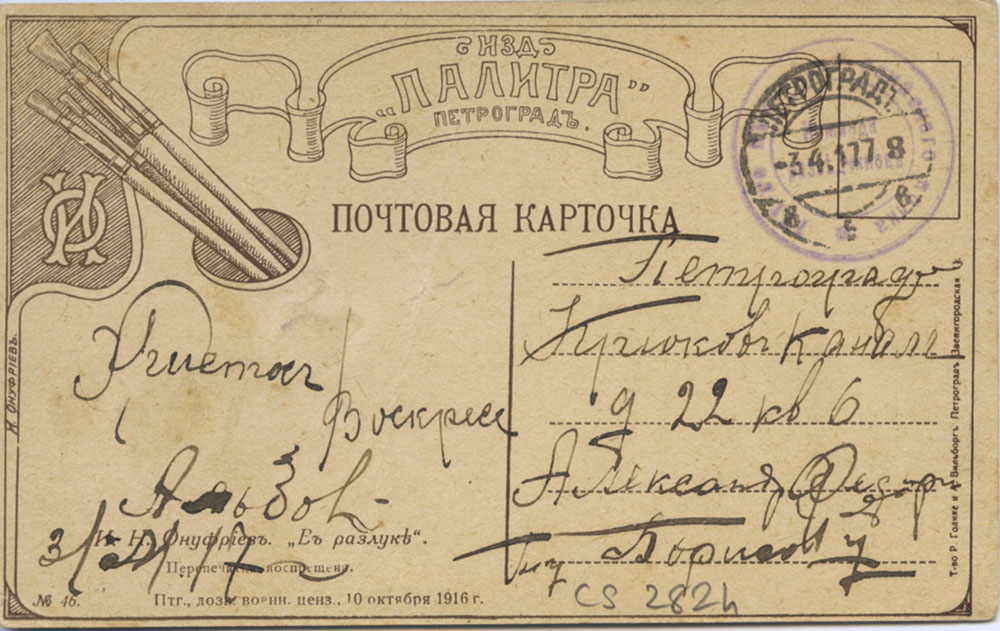 ИЗД.
"ПАЛИТРА"
ПЕТРОГРАДЪ.
ПЕТРОГРАДЪ
-3.4.17 7 8
ПОЧТОВАЯ КАРТОЧКА
Петроградъ
Крюковъ каналъ
д 22 кв 6
Александру
Борисову
Христосъ
Воскресе
Альбов
3/IV 17
И. Н. Онуфріевъ. „Въ разлукѣ“.
Перепечатка воспрещена.
№ 46.
Птг., дозв. военн. ценз., 10 октября 1916 г.
CS 2824
И. ОНУФРІЕВЪ.
Т-во Р. Голике и А. Вильборгъ. Петроградъ, Звенигородская 11.